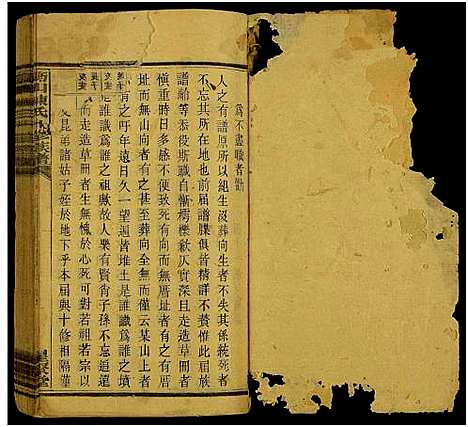 為不盡職者勸
人之有譜原所以紀生沒葬向生者不失其係統死者
不忘其所在地也前屆譜牒俱皆精詳不贅惟此屆族
譜等忝役斯職自慚樗櫟欲仄實深且走造草冊者
慎重時日多感不便致有葬所而無向而無厝址者有之有厝
址而無山向者有之甚至葬向全無而僅云某山上者
有之吁年遠日久一望迴皆堆土是誰識為誰之墳
是誰識為誰之祖歟故人樂有賢肖子孫不忘追遠
而走造草冊者生無愧於心死可對若祖若宗以
及昆弟諸姑子姪於地下乎本屆與十修相隔僅